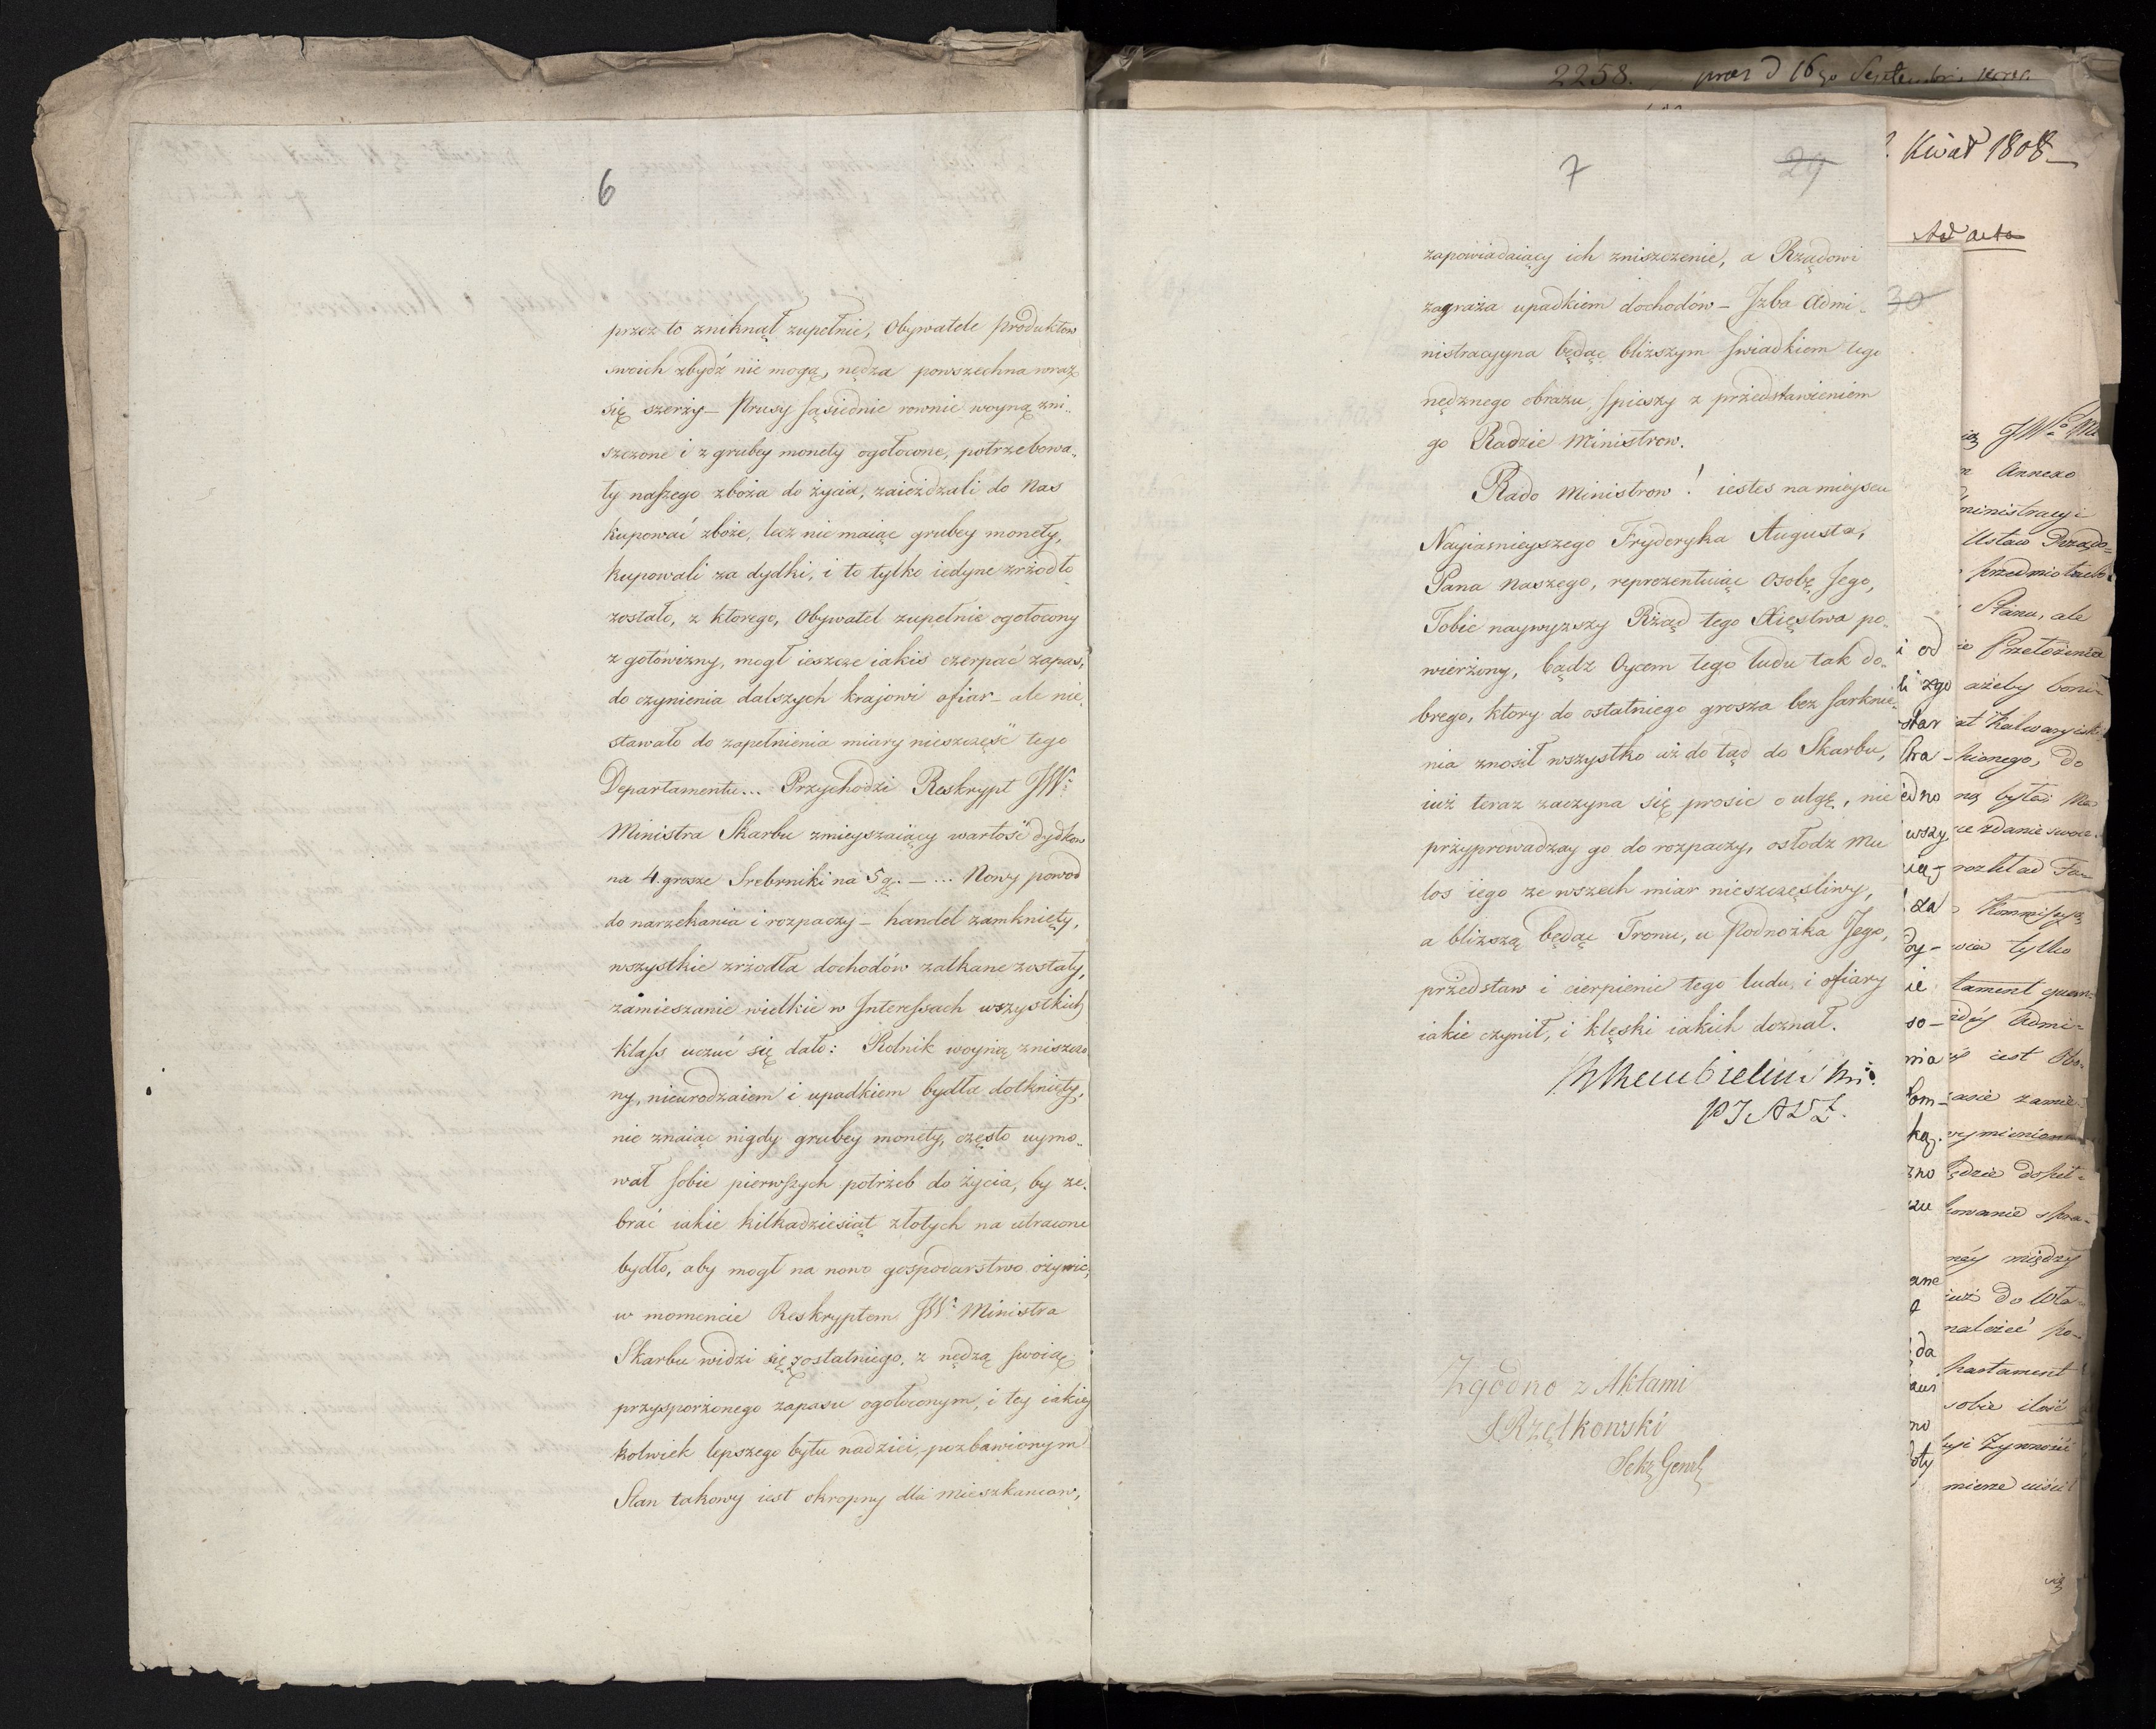 6
przez to zniknął zupełnie, Obywatele produktow
swoich zbydź nie mogą, nędza powszechna wraz
się szerzy – Prusy sąsiednie rownie woyną zni„
szczone i z grubey monety ogołocone, potrzebowa„
ły naszego zboża do życia, zaieżdzali do Nas
kupować zboże, lecz nie maiąc grubey monety,
kupowali za dydki, i to tylko iedyne zrżodło
zostało, z ktorego, Obywatel zupełnie ogołocony
z gotowizny, mogł ieszcze iakiś czerpać zapas,
do czynienia dalszych krajowi ofiar – ale nie„
stawało do zapełnienia miary nieszczęść tego
Departamentu... Przychodzi Reskrypt JW:
Ministra Skarbu zmieyszaiący wartość dydkow
na 4 grosze Srebrniki na 5 g. – ... Nowy powod
do narzekania i rozpaczy – handel zamknięty,
wszystkie zrżodła dochodów zatkane zostały,
zamieszanie wielkie w Interessach wszystkich
klass uczuć się dało: Rolnik woyną zniszczo
ny, nieurodzaiem i upadkiem bydła dotknięty,
nie znaiąc nigdy grubey monety, często uymo„
wał sobie pierwszych potrżeb do życia, by ze„
brać iakie kilkadziesiąt złotych na utracone
bydło, aby mogł na nowo gospodarstwo ożywić,
w momencie Reskryptem JW: Ministra
Skarbu widzi się z ostatniego, z nędzą swoią
przysporżonego zapasu ogołoconym, i tey iakiey
kolwiek lepszego bytu nadziei, pozbawionym
Stan takowy iest okropny dla mieszkancow,
2258. prez d 16go Septembris
7 29
30
zapowiadaiący ich zniszczenie, a Rządowi
zagraża upadkiem dochodów – Izba Admi„
nistracyyna będąc bliższym swiadkiem tego
nędznego obrazu, spieszy z przedstawieniem
go Radzie Ministrow.
Rado Ministrow! iestes na mieyscu
Nayiasnieyszego Fryderyka Augusta,
Pana Naszego, reprezentuiąc Osobę Jego,
Tobie naywyzszy Rżąd tego Xięstwa po„
wierżony, bądz Oycem tego ludu tak do„
brego, ktory do ostatniego grosza bez sarknie„
nia znosił wszystko aż do tąd do Skarbu,
iuż teraz zaczyna się prosic o ulgę, nie
przyprowadzay go do rozpaczy, osłodz Mu
los iego ze wszech miar nieszczęśliwy,
a bliższą będąc Tronu, u Podnożka Jego,
przedstaw i cierpienie tego ludu, i ofiary
iakie czynił, i klęski iakich doznał.
Rembielinski
PIADŁ.
Zgodno z Aktami
J Rzętkowski
Sekr Genrl
Kwiet 1808
Ad acta
Annexo
ministracyi
Ustaw Rządo=
Stanu, ale
Przełożenia
ażeby
Kalwaryisk
do
zdanie swoie
rozkład
Kommissyą
tylko
tament
Admi=
iest
zamie=
wymienion
między
należeć po=
partament
sobie ilość
Zywność
mierze uiścił